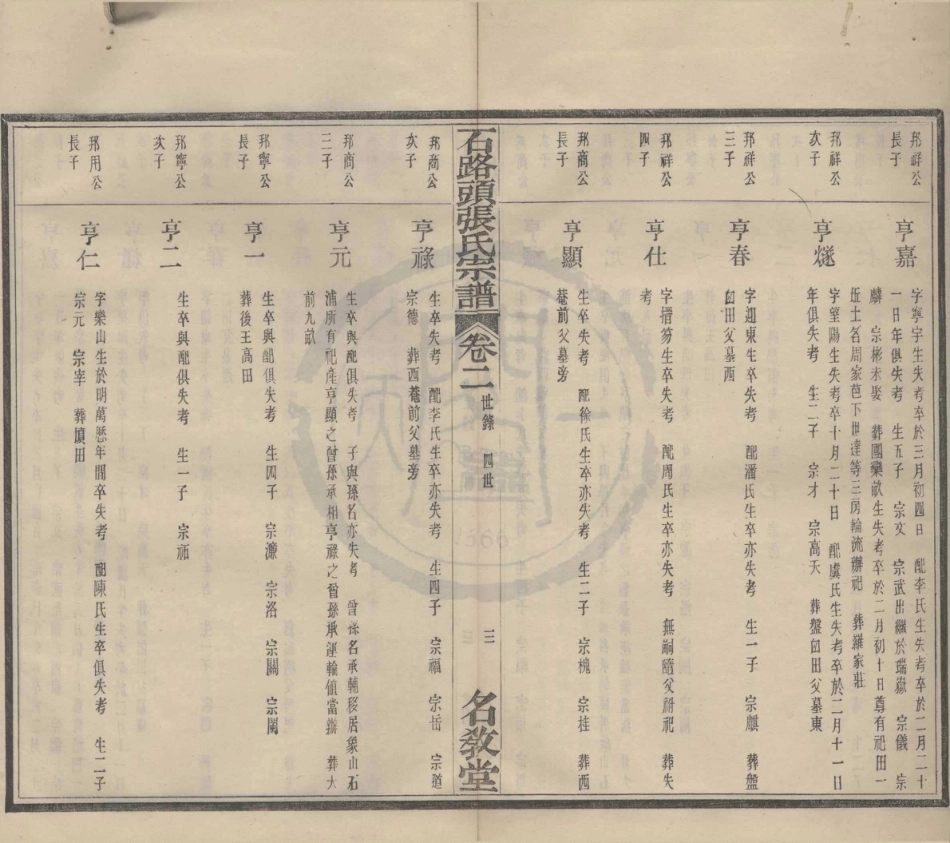 邦祥公
長子
亨嘉
字寧宇生失考卒於三月初四日 配李氏生失考卒於二月二十
一日年俱失考 生五子 宗文 宗武出繼於瑞嶽 宗儀 宗
麟 宗彬未娶 葬園欒畝生失考卒於二月初十日尊有祀田一
坵土名周家芭下世達等三房輪流辦祀 葬羅家莊
邦祥公
次子
亨燧
字望陽生失考卒十月二十日 配虞氏生失考卒於二月十一日
年俱失考 生二子 宗才 宗高夭 葬盤囱田父墓東
邦祥公
三子
亨春
字迎東生卒失考 配潘氏生卒亦失考 生一子 宗麒 葬盤
囱田父墓西
邦祥公
四子
亨仕
字搢笏生卒失考 配周氏生卒亦失考 無嗣隨父祔祀 葬失
考
邦商公
長子
亨顯
生卒失考 配徐氏生卒亦失考 生二子 宗槐 宗桂 葬西
菴前父墓旁
石路頭張氏宗譜
卷二 世錄 四世 三 名教堂
邦商公
次子
亨祿
生卒失考 配李氏生卒亦失考 生四子 宗福 宗岳 宗道
宗德 葬西菴前父墓旁
邦商公
三子
亨元
生卒與配俱失考 子與孫名亦失考 曾孫名承輔移居象山石
浦所有祀產亨顯之曾孫承相亨祿之曾孫承運輪值當辦 葬大
前九畝
邦寧公
長子
亨一
生卒與配俱失考 生四子 宗濂 宗洛 宗關 宗閩
葬後王高田
邦寧公
次子
亨二
生卒與配俱失考 生一子 宗祏
邦用公
長子
亨仁
字樂山生於明萬歷年間卒失考 配陳氏生卒俱失考 生二子
宗元 宗宰 葬墳田